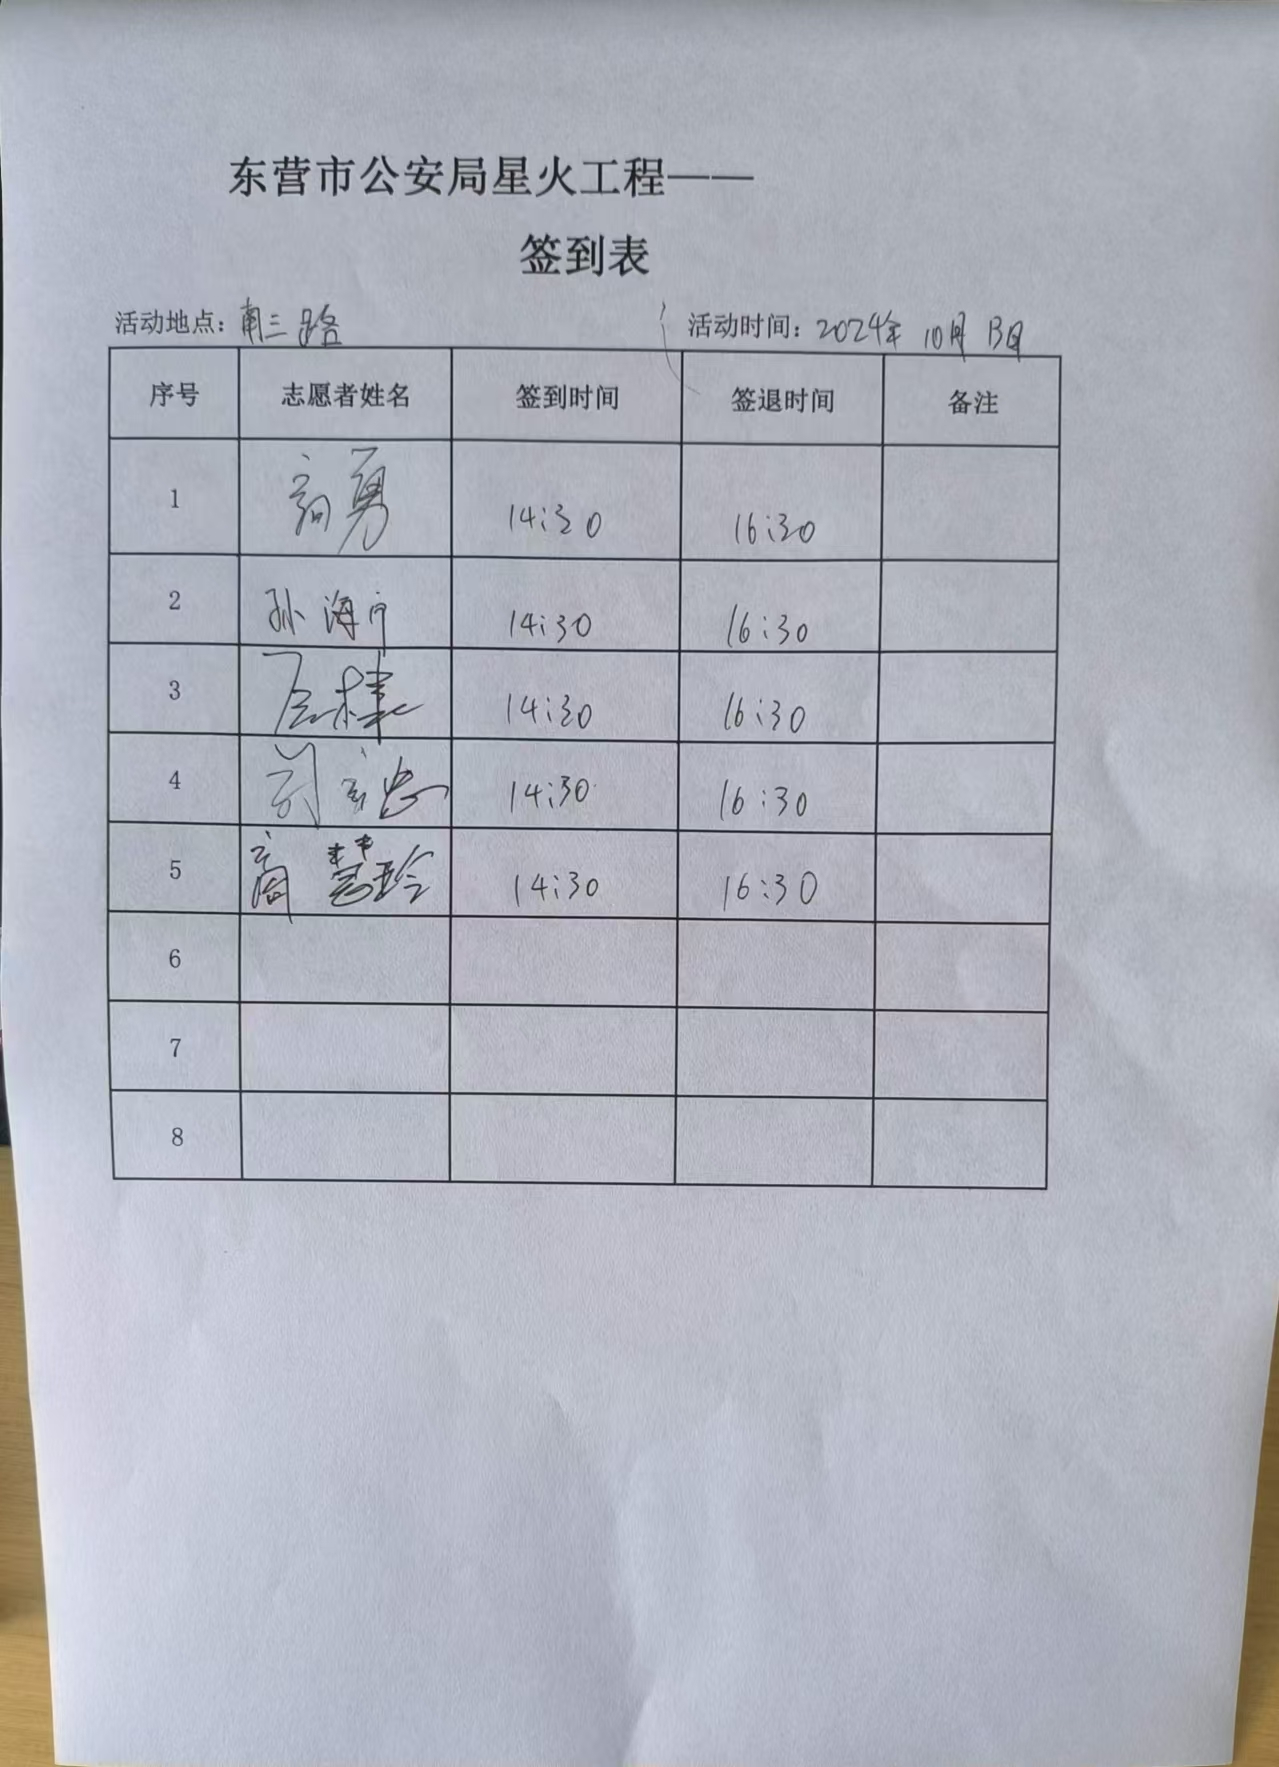 东营市公安局星火工程——
签到表
活动地点：南三路 活动时间：2024年10月13日
序号 志愿者姓名 签到时间 签退时间 备注
1 勇 14:30 16:30
2 孙海 14:30 16:30
3 14:30 16:30
4 14:30 16:30
5 商慧玲 14:30 16:30
6
7
8